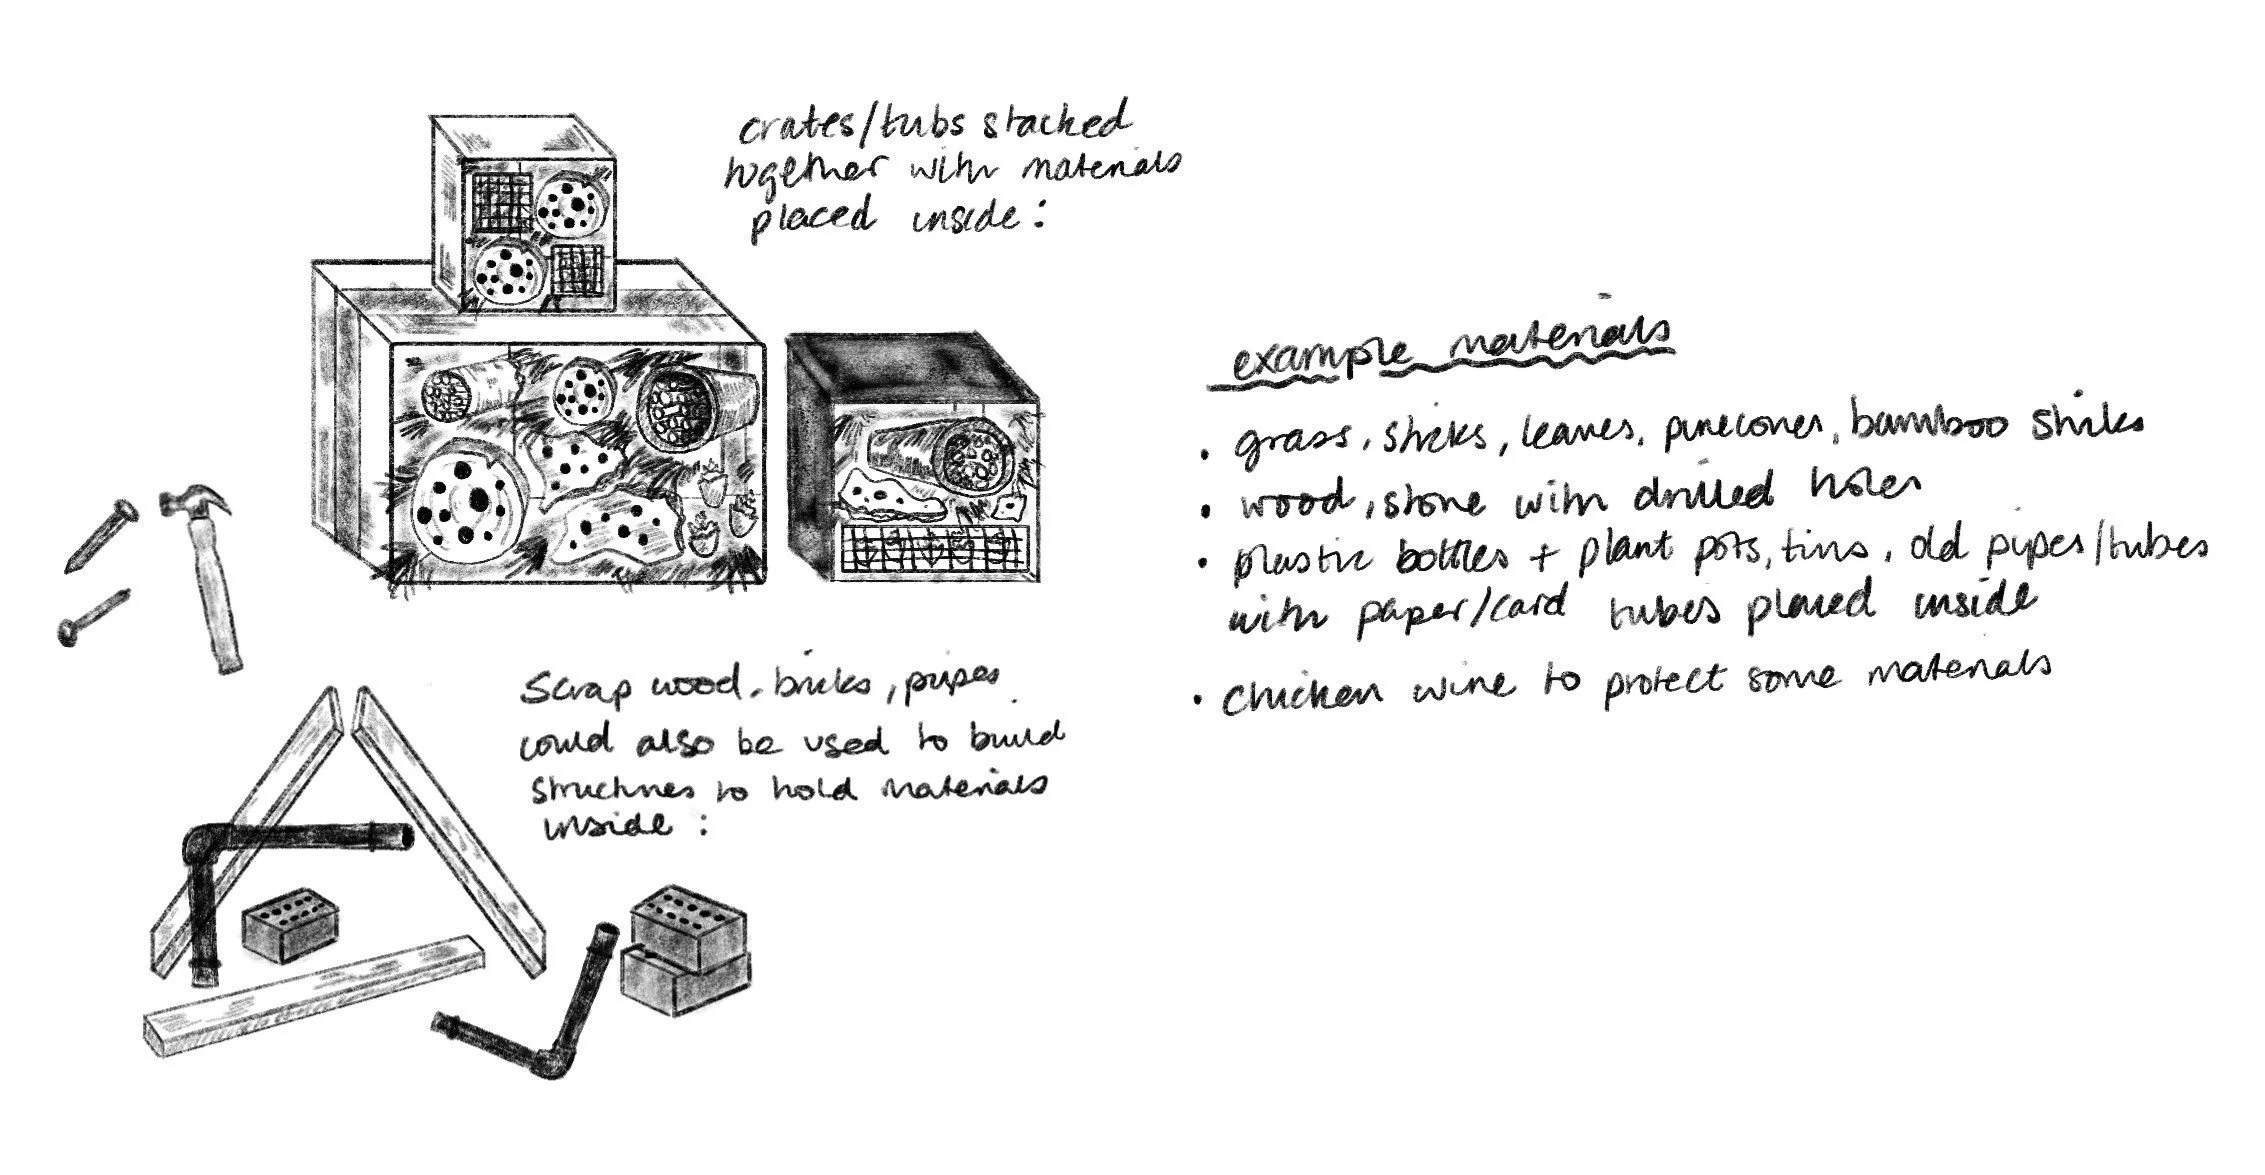 crates/tubs stacked
together with materials
placed inside:
example materials
• grass, sticks, leaves, pinecones, bamboo sticks
• wood, stone with drilled holes
• plastic bottles + plant pots, tins, old pipes/tubes
with paper/card tubes placed inside
• chicken wire to protect some materials
Scrap wood, bricks, pipes
could also be used to build
structures to hold materials
inside: